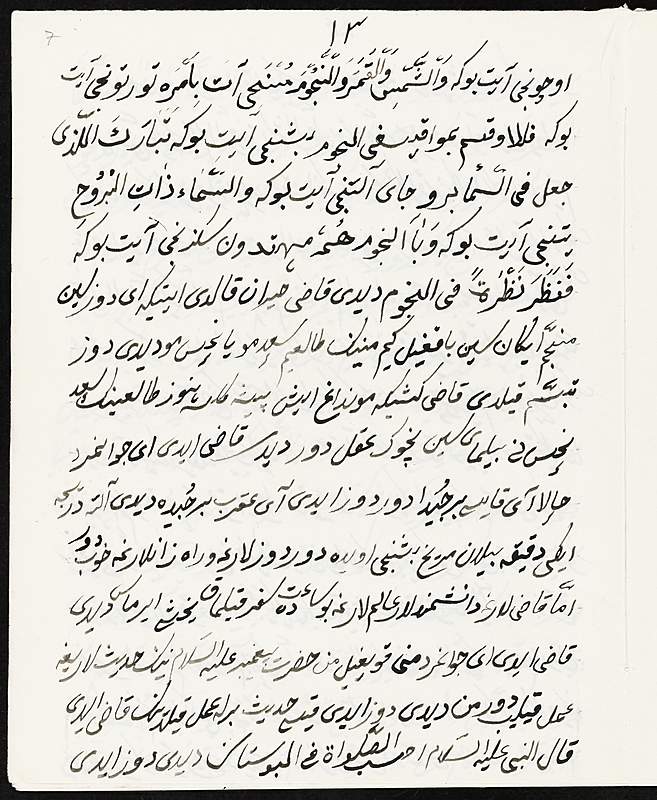 ١٣
اوچونجی آیت بوکه وَالشَّمْسَ وَالْقَمَرَ وَالنُّجُوْمَ مُسَخَّرَاتٍ بِاَمْرِه تورتونجی آیت
بوکه فلا اقسم بمواقع النجوم بشنجی آیت بوکه تَبَارَكَ الَّذِی
جعل فی السَّما بروجاً آلتنجی آیت بوکه والسَّمَاء ذاتِ البُرُوْج
یتنجی آیت بوکه وَبِاالنجم هُمْ یهتدون سکزنجی آیت بوکه
فَنَظَرَ نَظْرَةً فی النجوم دیدی قاضی حیران قالدی ایتیکه ای دوز سین
منجّم ایکان سین باقغیل کیم مننک طالعیم سعد مو یا نحس مو دیدی دوز
تبسّم قیلدی قاضی کشیکه مونداغ ایش پیشه هنوز طالعینک سعد
نحس نی بیلمای سین نچوک عقل دور دیدی قاضی ایدی ای جوانمرد
حالا آی قایسی برجیدا دور دوز ایدی آی عقرب برجیده دیدی آلتی درجه
ایکی دقیقه بیلان مریخ بشنجی اویده دور دوزلارغه و راه زانلارغه خوب دور
امّا قاضی لارغه دانشمندلار عالم لارغه بو ساعت ده سفر قیلماق یخشی ایرماس دیدی
قاضی ایدی ای جوانمرد منی قویغیل من حضرت پیغمبر علیه السّلام نینک حدیث لاریغه
عمل قیلیب دورمن دیدی دوز ایدی قیسی حدیث برله عمل قیلدینک قاضی ایدی
قال النبی علیه السّلام احسب الصَّلواة فی البوستان دیدی دوز ایدی